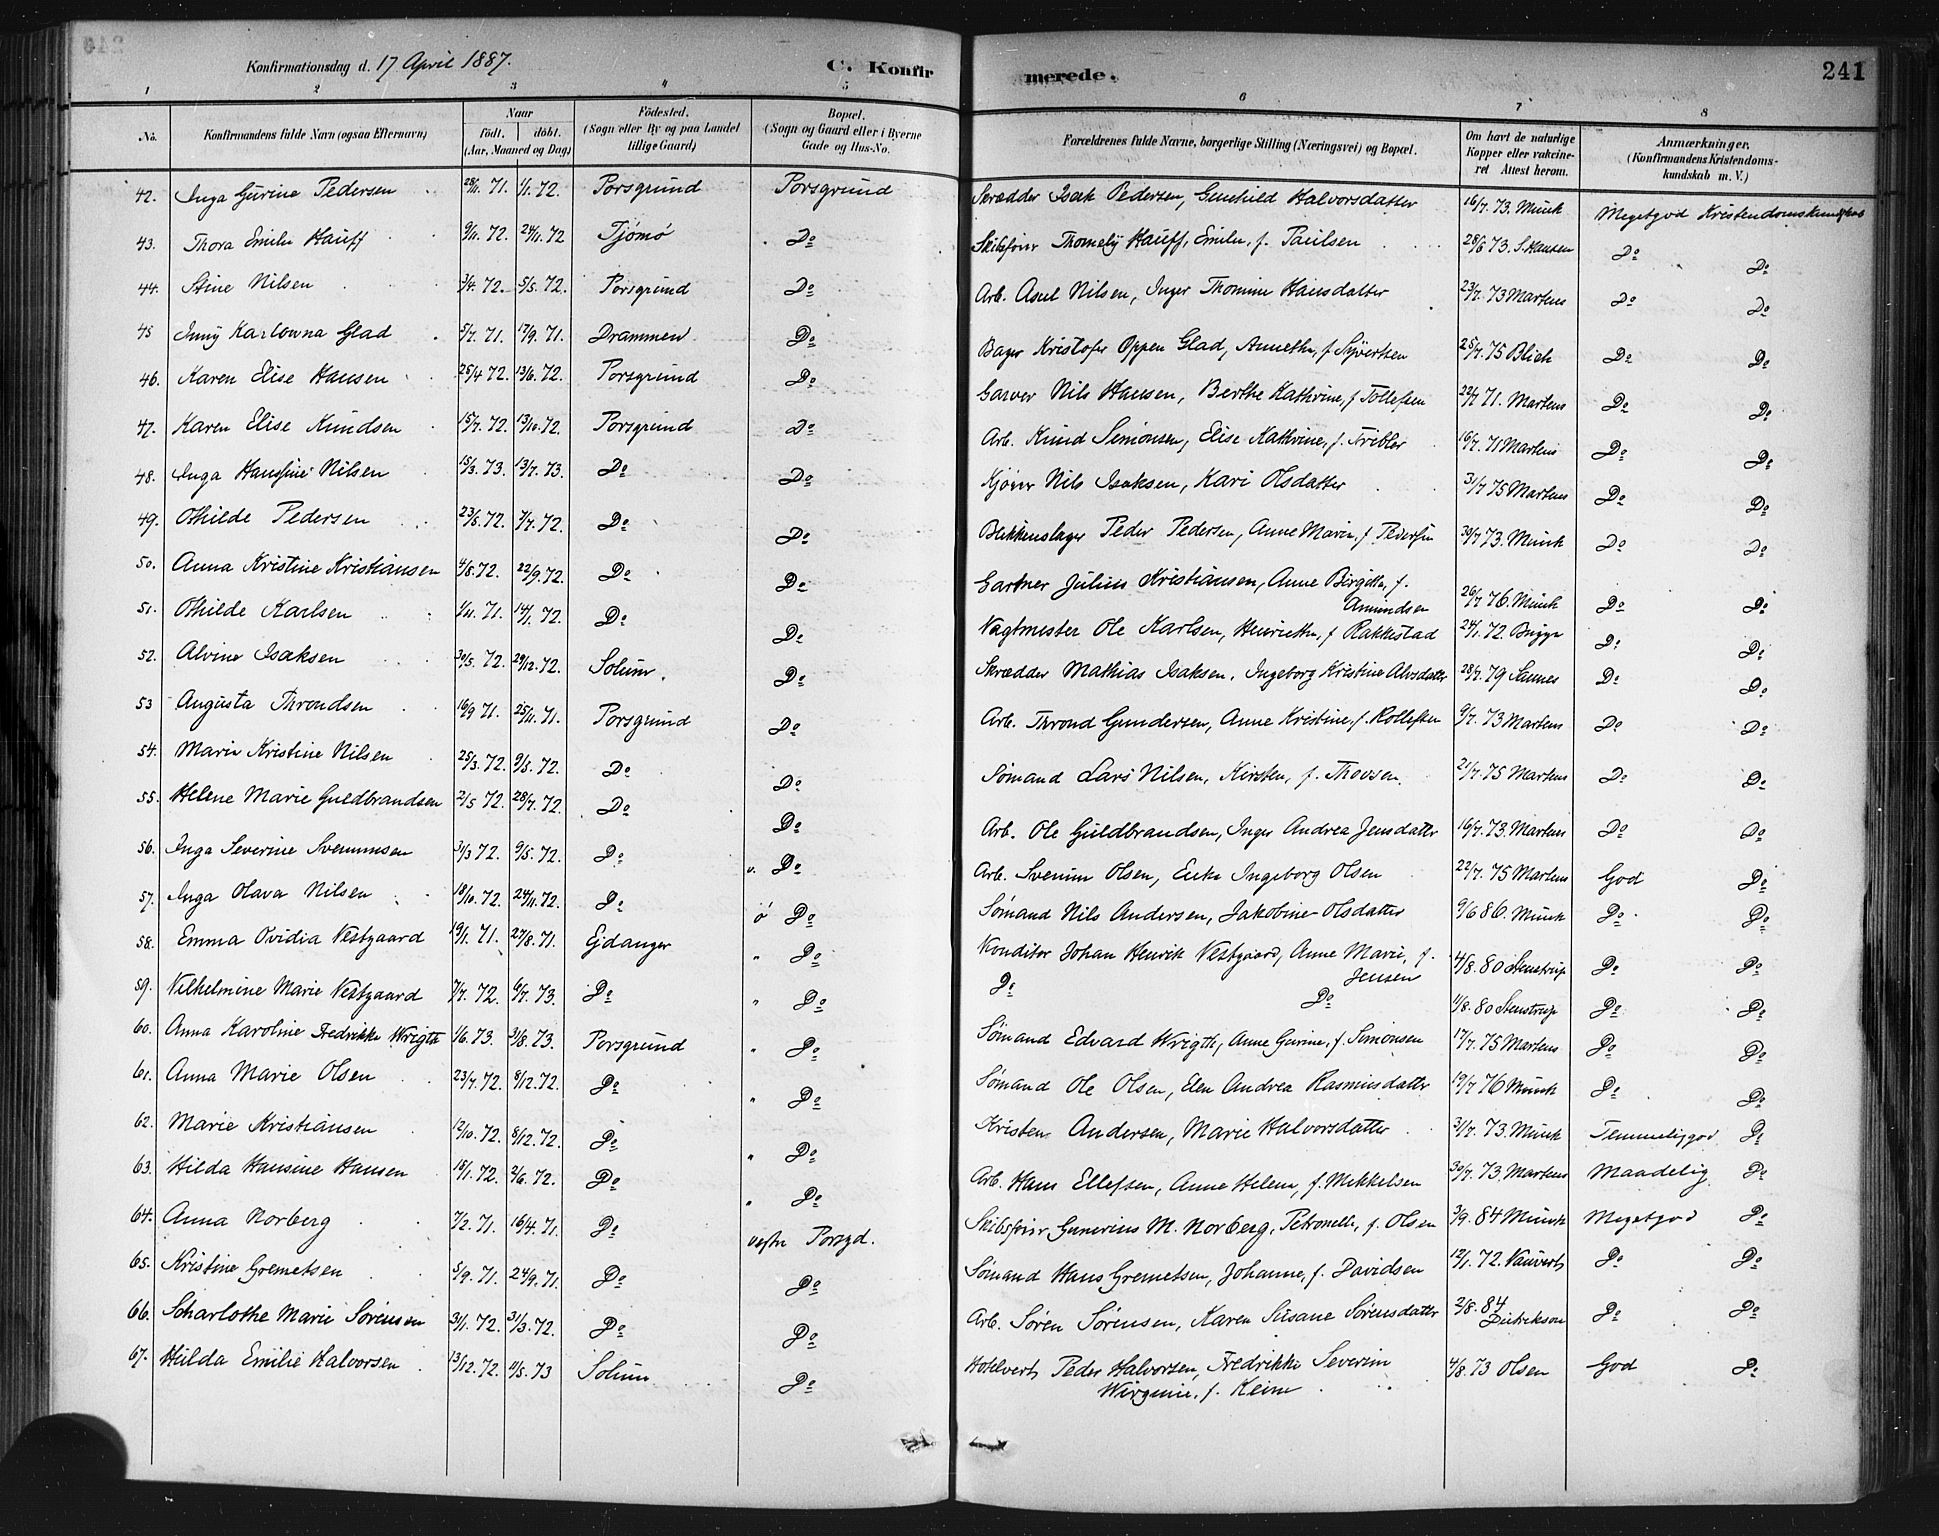 Konfirmationsdag d. 17 April 1887. C. Konfirmerede. 241
1 2 3 4 5 6 7 8
No. Konfirmandens fulde Navn (ogsaa Efternavn) Naar født. døbt. (Aar, Maaned og Dag) Födested. (Sogn eller By og paa Landet tillige Gaard) Bopæl. (Sogn og Gaard eller i Byerne Gade og Hus-No. Forældrenes fulde Navne, borgerlige Stilling (Næringsvei) og Bopæl. Om havt de naturlige Kopper eller vakcineret Attest herom. Anmærkninger. (Konfirmandens Kristendomskundskab m. V.)
42. Inga Gurine Pedersen 28/11. 71. 1/1. 72. Porsgrund Porsgrund Skrædder Isak Pedersen, Gunhild Halvorsdatter 16/7. 73. Münk Megetgod Kristendomskundskab
43. Thora Emilie Hauff 9/11. 72. 24/11. 72 Tjømø Do Skibsfører Thomely Hauff, Emilie, f. Paulsen 28/6 73. S. Hansen Do Do
44. Stine Nilsen 3/4. 72. 5/5. 72. Porsgrund Do Arb. Asul Nilsen, Inger Thomine Hansdatter 23/7. 73 Martens Do Do
45 Jenny Karlowna Glad 5/7. 71. 17/9. 71. Drammen Do Bager Kristofer Oppen Glad, Annethe, f. Syvertsen 25/7. 75 Blich Do Do
46. Karen Elise Hansen 25/4 72. 13/6. 72. Porsgrund Do Garver Nils Hansen, Berthe Kathrine, f Tollefsen 22/7 71. Martens Do Do
47. Karen Elise Knudsen 15/7. 72. 13/10. 72. Porsgrund Do Arb. Knud Simonsen, Elise Kathrine, f. Tribler 16/7. 71 Martens Do Do
48. Inga Hansine Nilsen 15/3. 73. 13/7. 73. Do Do Kjører Nils Isaksen, Kari Olsdatter 31/7 75 Martens Do Do
49. Othilde Pedersen 23/5. 72. 7/7. 72. Do Do Blikkenslager Peder Pedersen, Anne Marie, f Pedersen 30/7 73. Münk Do Do
50. Anna Kristine Kristiansen 4/8. 72. 22/9. 72. Do Do Gartner Julius Kristiansen, Anne Birgitte, f. Amundsen 26/7 76. Münk Do Do
51. Othilde Karlsen 1/11. 71. 14/1. 72. Do Do Vagtmester Ole Karlsen, Henriethe, f Rakkestad 24/1. 72. Brigge Do Do
52. Alvine Isaksen 30/5. 72. 29/12. 72. Solum. Do Skrædder Mathias Isaksen, Ingeborg Kristine Alvsdatter 28/7. 79 Sannes Do Do
53 Augusta Throndsen 16/9 71. 25/11. 71. Porsgrund Do Arb. Thrond Gundersen, Anne Kristine, f. Rollefsen 9/7. 73 Martens Do Do
54. Marie Kristine Nilsen 25/3. 72. 9/5. 72. Do Do Sømand Lars Nilsen, Kirsten, f. Thorsen. 21/7. 75 Martens Do Do
55. Helene Marie Guldbrandsen 2/5 72. 28/7. 72. Do Do Arb. Ole Guldbrandsen, Inger Andrea Jensdatter 16/7. 73. Martens Do Do
56. Inga Severine Svennumsen 31/3 72. 9/5. 72. Do v. Do Arb. Svenum Olsen, Ingeborg Olsen 22/7. 75 Martens God Do
57. Inga Olava Nilsen 18/10. 72. 24/11. 72. Do ø Do Sømand Nils Andersen, Jakobine Olsdatter 9/6 86. Münk Do Do
58. Emma Ovidia Vestgaard 19/1. 71. 27/8. 71. Ejdanger " Do Konditor Johan Henrik Vestgaard, Anne Marie, f. Jensen 4/8. 80 Stenstrup Do Do
59. Vilhelmine Marie Vestgaard 7/7. 72. 6/7. 73. Do " Do Do Do 11/8. 80 Stenstrup Do Do
60. Anna Karoline Fredrikke Wrigth 1/6. 73. 31/8. 73. Porsgrund " Do Sømand Edvard Wrigth, Anne Gurine, f. Simonsen 17/7. 75 Martens Do Do
61. Anna Marie Olsen 23/7. 72. 8/12. 72. Do " Do Sømand Ole Olsen, Elen Andrea Rasmusdatter 19/7 76 Münk Do Do
62. Marie Kristiansen 12/10. 72. 8/12. 72. Do " Do Kristen Andersen, Marie Halvorsdatter 31/7. 73. Münk Temmeliggod Do
63. Hilda Hansine Hansen 15/1. 72. 2/6. 72. Do " Do Arb. Hans Ellefsen, Anne Helene, f. Mikkelsen 30/7. 73 Martens Maadelig Do
64. Anna Norberg 7/2. 71. 16/4. 71. Do vestre Porsgd. Skibsfører Gunerius M. Norberg, Petronelle, f. Olsen 3/9. 84 Münk Megetgod Do
65. Kristine Gremetsen 5/9. 71. 24/9. 71. Do Do Sømand Hans Gremetsen, Johanne, f. Davidsen 12/1. 72. Vauvert Do Do
66. Scharlothe Marie Sørensen 3/1. 72. 31/3. 72. Do Do Arb. Søren Sørensen, Karen Susane Sørensdatter 2/8. 84 Didrikson Do Do
67. Hilda Emilie Halvorsen 13/12. 72. 11/5. 73 Solum Do Hotelvert Peder Halvorsen, Fredrikke Severine Wirginie, f. Keim 4/8. 73 Olsen God Do